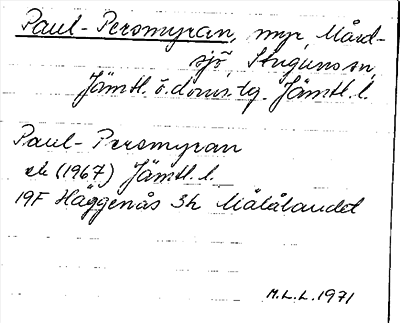 Paul-Persmyran, myr, Mård-
sjö, Stuguns sn,
Jämtl. ö. doms. tg. Jämtl. l.
Paul-Persmyran
ek (1967) Jämtl. l.
19F Häggenås 3h Målålandet
M.L.L. 1971